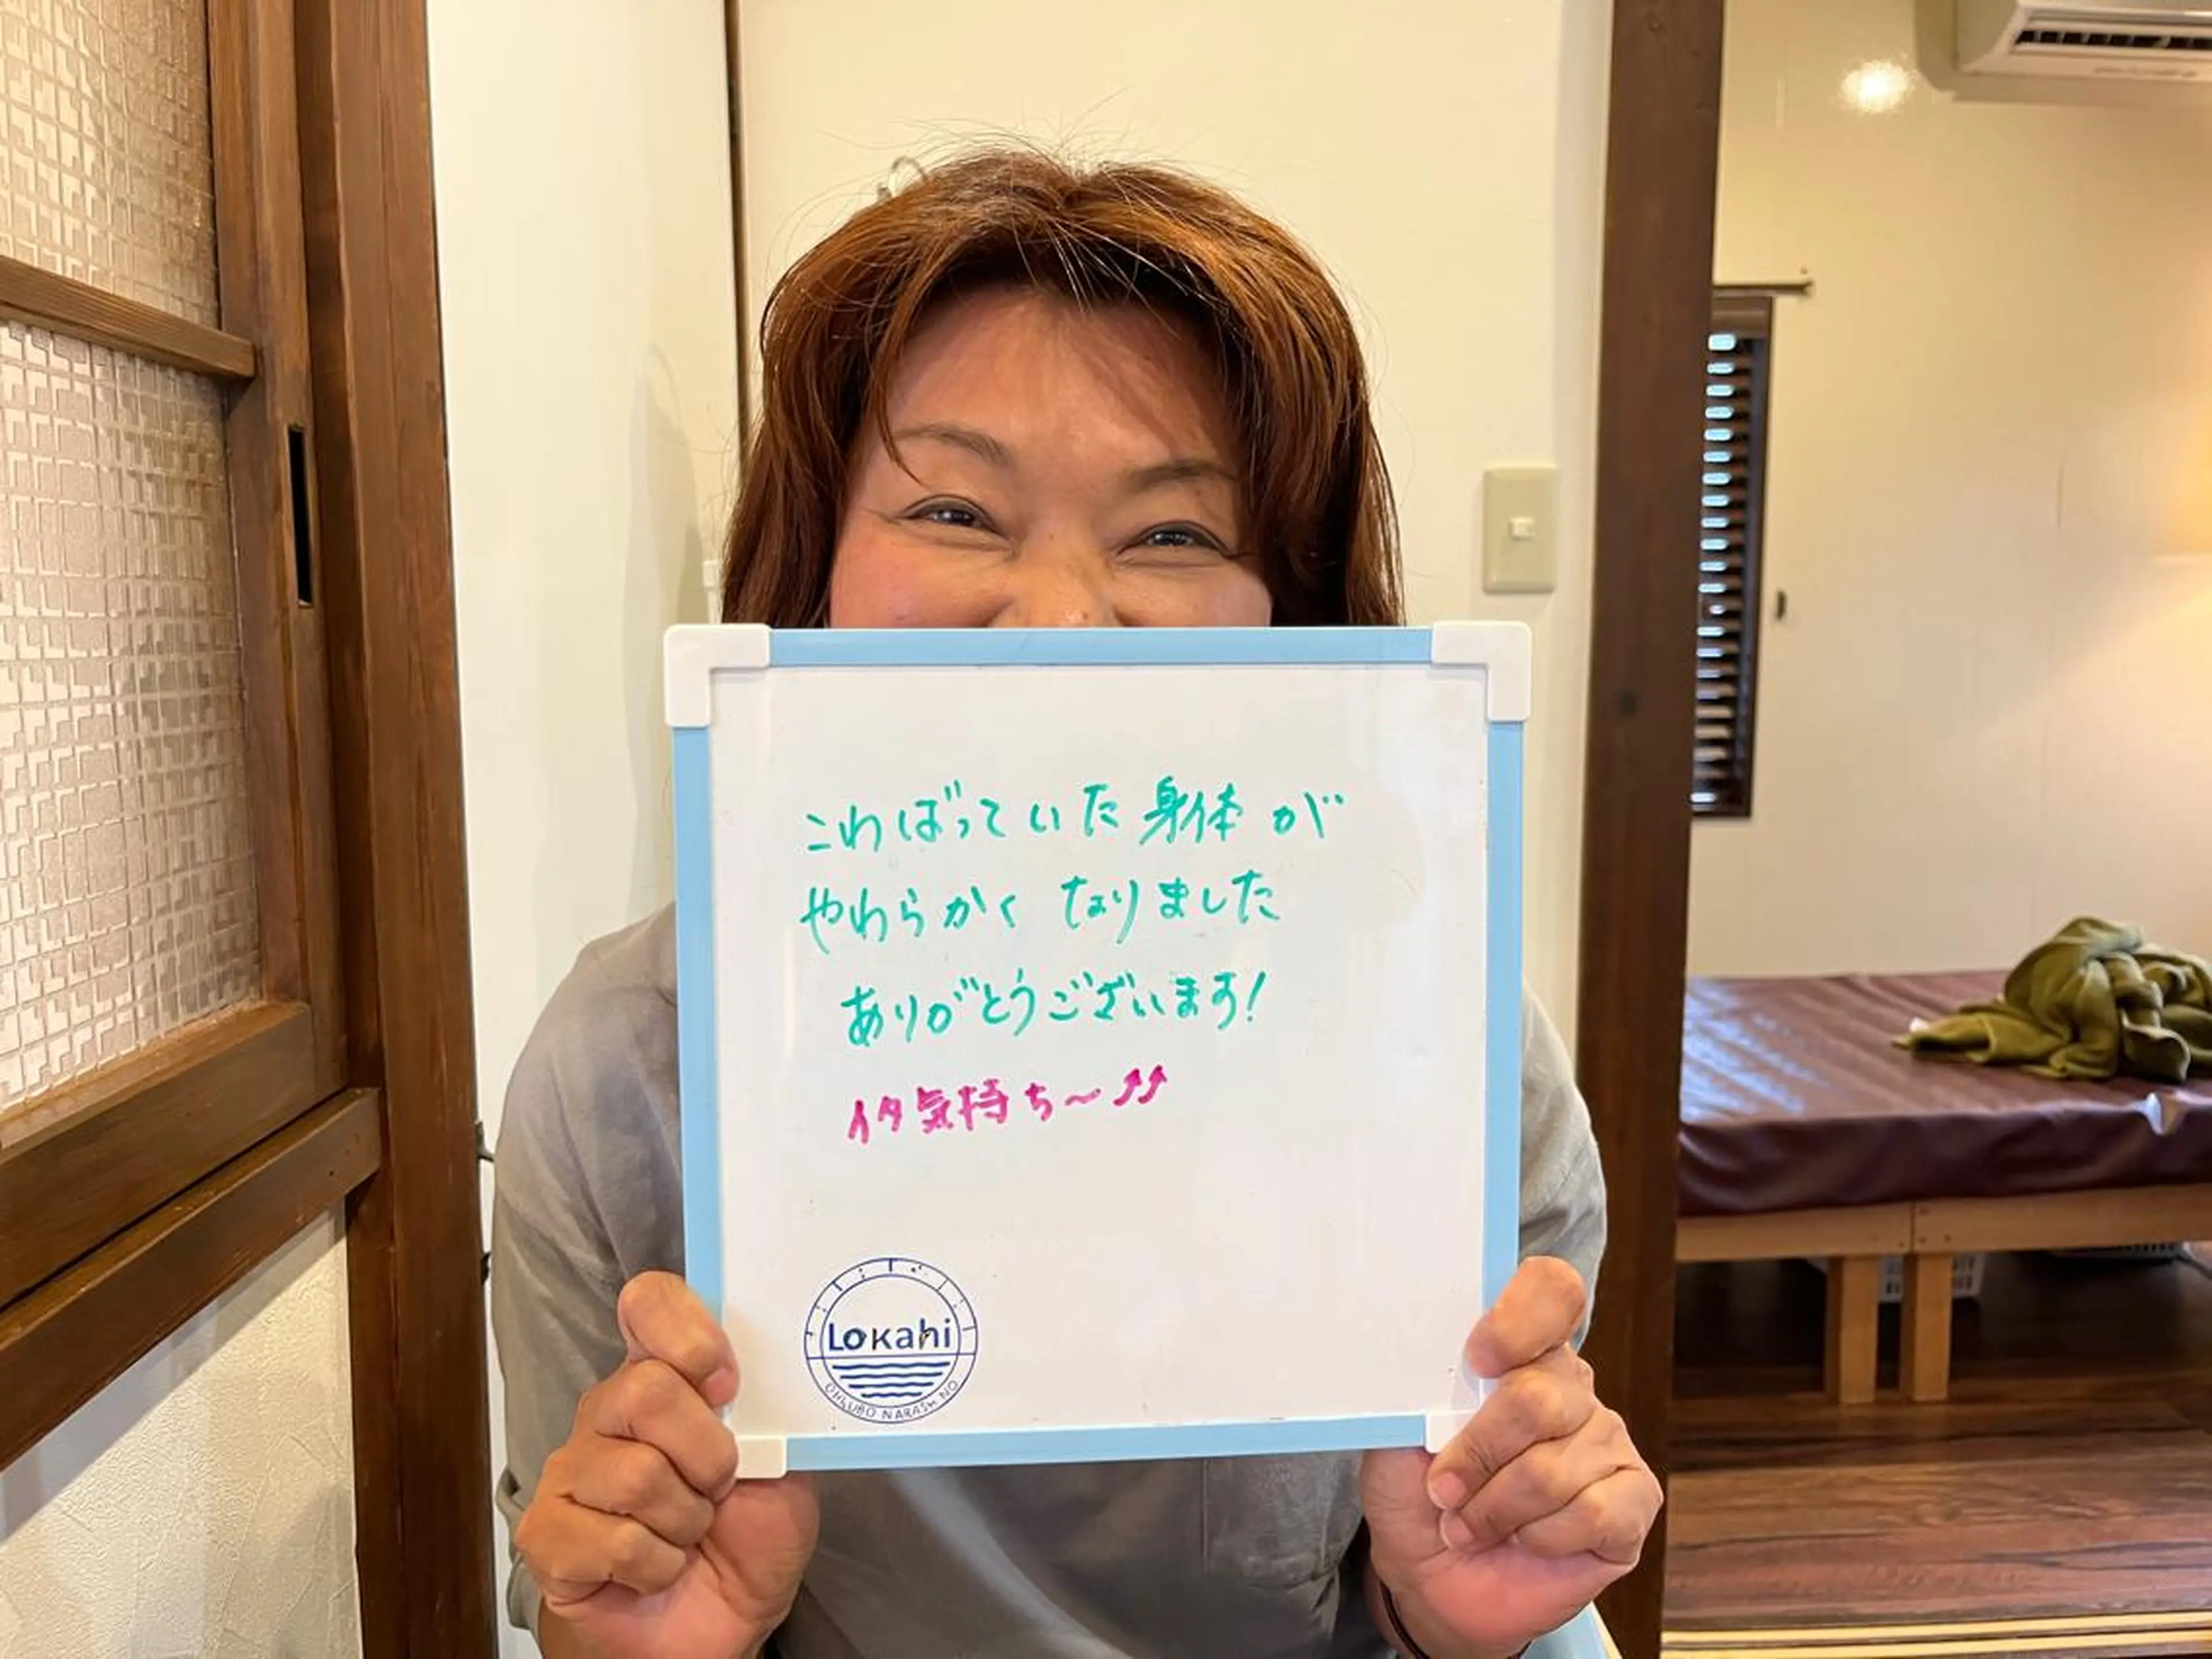 こわばっていた身体が
やわらかくなりました
ありがとうございます!
イタ気持ち〜⤴⤴
Lokahi
OHKUBO NARASHINO